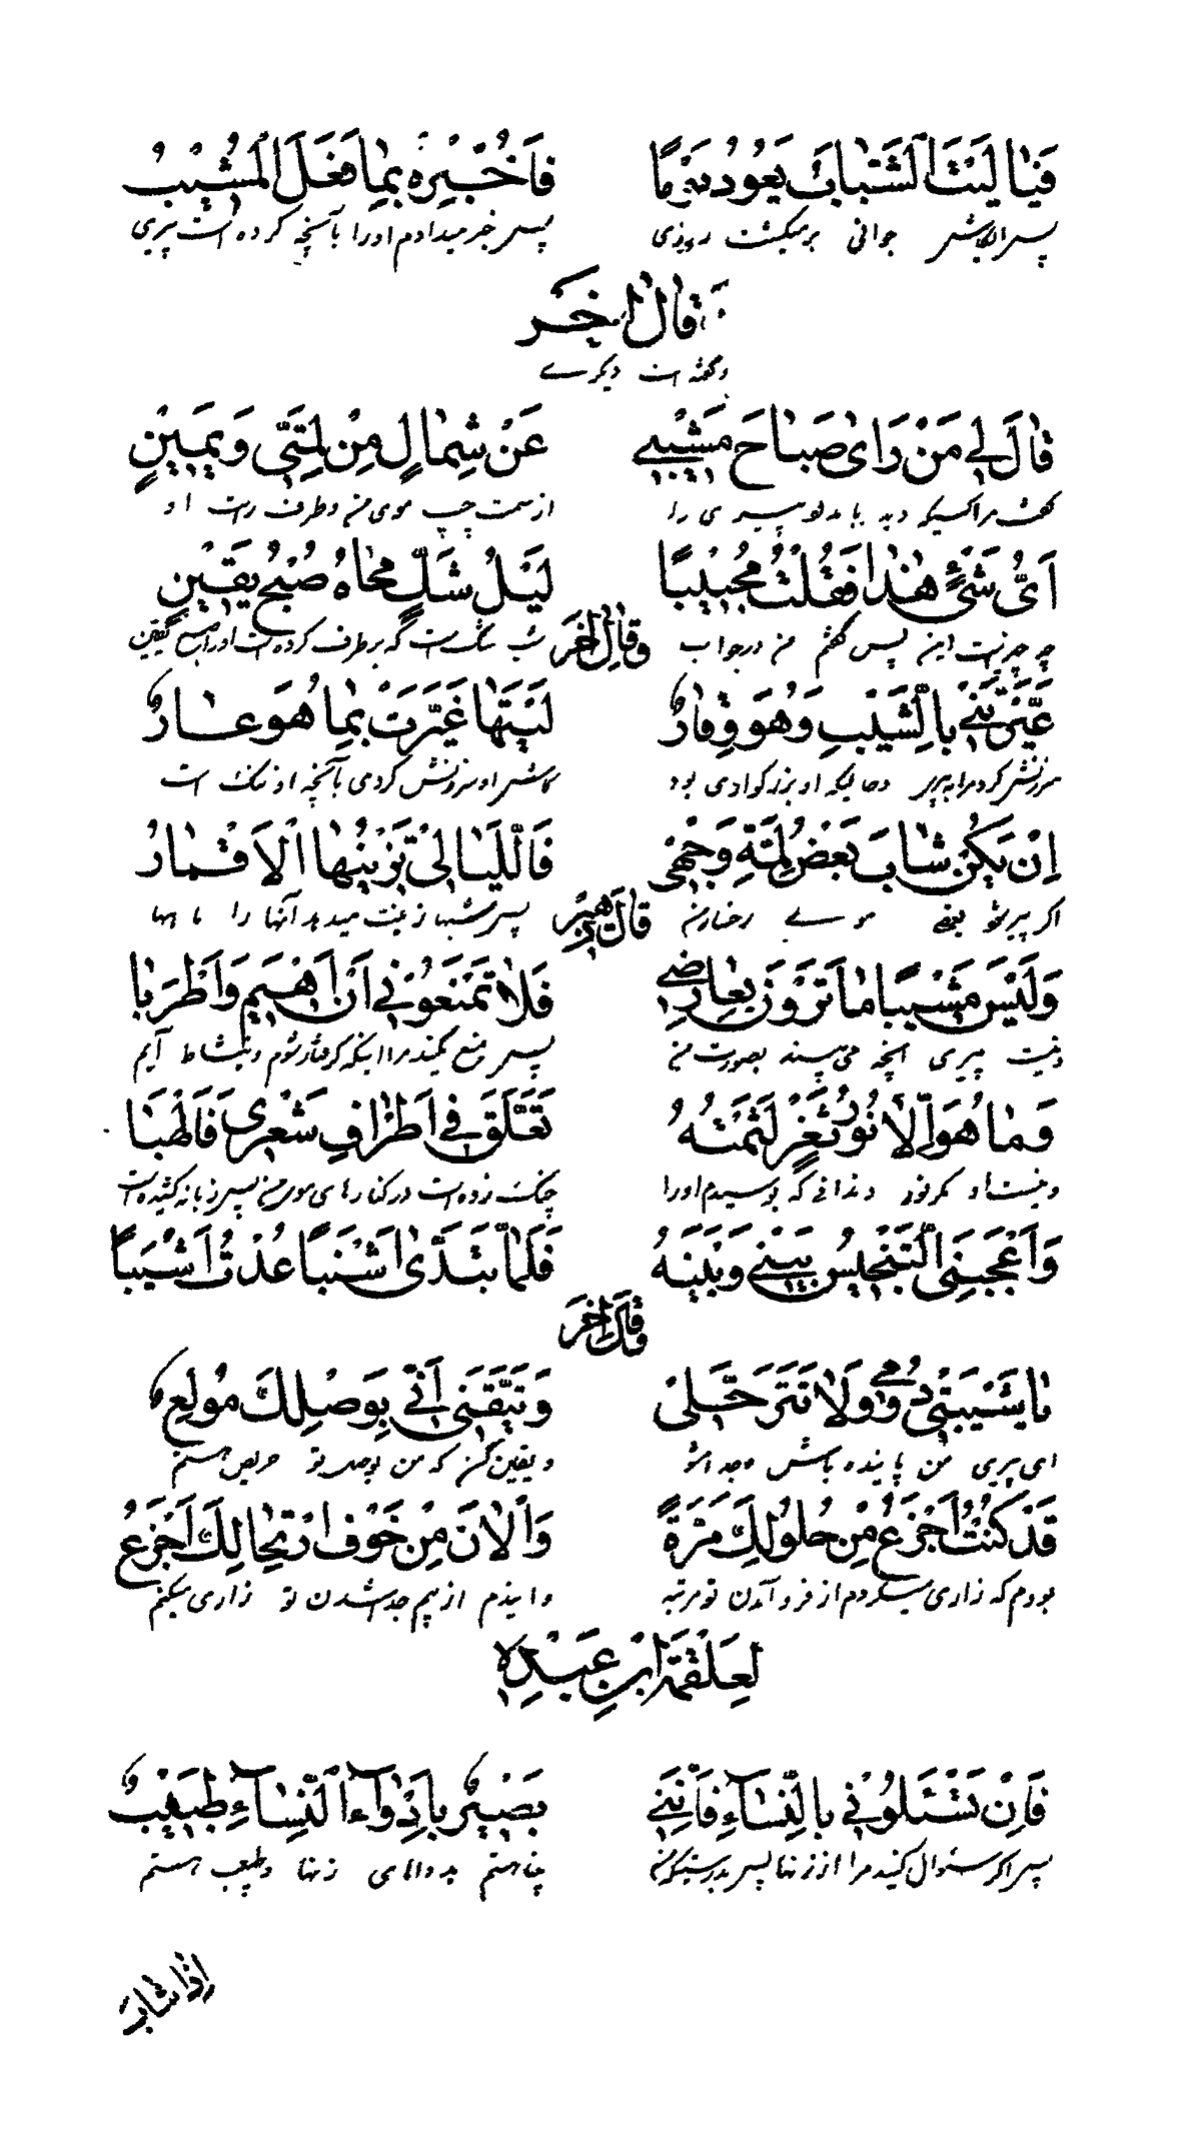 فَيٰا لَيْتَ الشَّبٰابَ يَعُودُ يَوْمًا فَاُخْبِرُهُ بِمٰا فَعَلَ الْمَشْيْبُ
پس ايكاش جوانی برميگشت روزی پس خبر ميدادم او را بآنچه كرده است پيری
قٰالَ اٰخَر
و گفته است ديگرے
قٰالَ لي مَنْ رَاىٰ صَبٰاحَ مَشْيبي عَنْ شِمٰالٍ مِنْ لِمَّتي وَ يَمينٍ
گفت مرا كسيكه ديد بامداد پيری را از سمت چپ موی من و طرف راست او
اَيُّ شَيْءٍ هٰذٰا فَقُلْتُ مُجيبًا لَيْلُ شَكٍّ مَحٰاهُ صُبْحُ يَقينٍ
چه چيز است اين پس گفتم من در جواب وَ قٰالَ اٰخَر شب شك است كه برطرف كرده است او را صبح يقين
عَيَّرَتْني بِالشَّيْبِ وَ هُوَ وِقٰارٌ لَيْتَهٰا عَيَّرَتْ بِمٰا هُوَ عٰارٌ
سرزنش كرد مرا به پيری و حاليكه او بزرگواری بود كاش او سرزنش كردی بآنچه او ننگ است
اِنْ يَكُنْ شٰابَ بَعْضُ لِمَّةِ وَجْهي فَاللَّيٰالي تَزينُهٰا الْاَقْمٰارُ
اگر پير شد بعضے موے رخسارم قٰالَ زُهَيْر پس شبها زينت ميدهد آنها را ماهها
وَ لَيْسَ مَشيبًا مٰا تَرَوْنَ بِعٰارِضي فَلاٰ تَمْنَعُوني اَنْ اَهيمَ وَ اَطْرَبٰا
و نيست پيری آنچه می بينيد بصورت من پس منع مكنيد مرا اينكه گرفتار شوم و بنشاط آيم
وَ مٰا هُوَ اِلّاٰ نُورُ ثَغْرٍ لَثَمْتُهُ تَعَلَّقَ في اَطْرٰافِ شَعْري فَاَلْهَبٰا
و نيست او مگر نور دندانی كه بوسيدم او را چنگ زده است در كنارهای موی من پس زبانه كشيده است
وَ اَعْجَبَنِي التَّجْنيسُ بَيْني وَ بَيْنَهُ فَلَمّٰا تَبَدّىٰ اَشْنَبًا عُدْتُ اَشْيَبًا
وَ قٰالَ اٰخَر
يٰا شَيْبَتي دُومي وَ لاٰ تَتَرَحَّلي وَ تَيَقَّني اَنّي بِوَصْلِكَ مُولَعٌ
ای پيری من پاينده باش و جدا مشو و يقين كن كه من بوصل تو حريص هستم
قَدْ كُنْتُ اَجْزَعُ مِنْ حُلُولِكِ مَرَّةً وَ الْاٰنَ مِنْ خَوْفِ ارْتِحٰالِكَ اَجْزَعُ
بودم كه زاری ميكردم از فرو آمدن تو مرتبه و ايندم از بيم جدا شدن تو زاری ميكنم
لِعَلْقَمَةَ ابْنِ عَبْدِهٖ
فَاِنْ تَسْئَلُوني بِالنِّسٰاءِ فَاِنَّني بَصيرٌ بِاَدْوٰاءِ النِّسٰاءِ طَبيبٌ
پس اگر سئوال كنيد مرا از زنها پس بدرستيكه من بينا هستم بدواهای زنها و طبيب هستم
اِذٰا شٰابَ